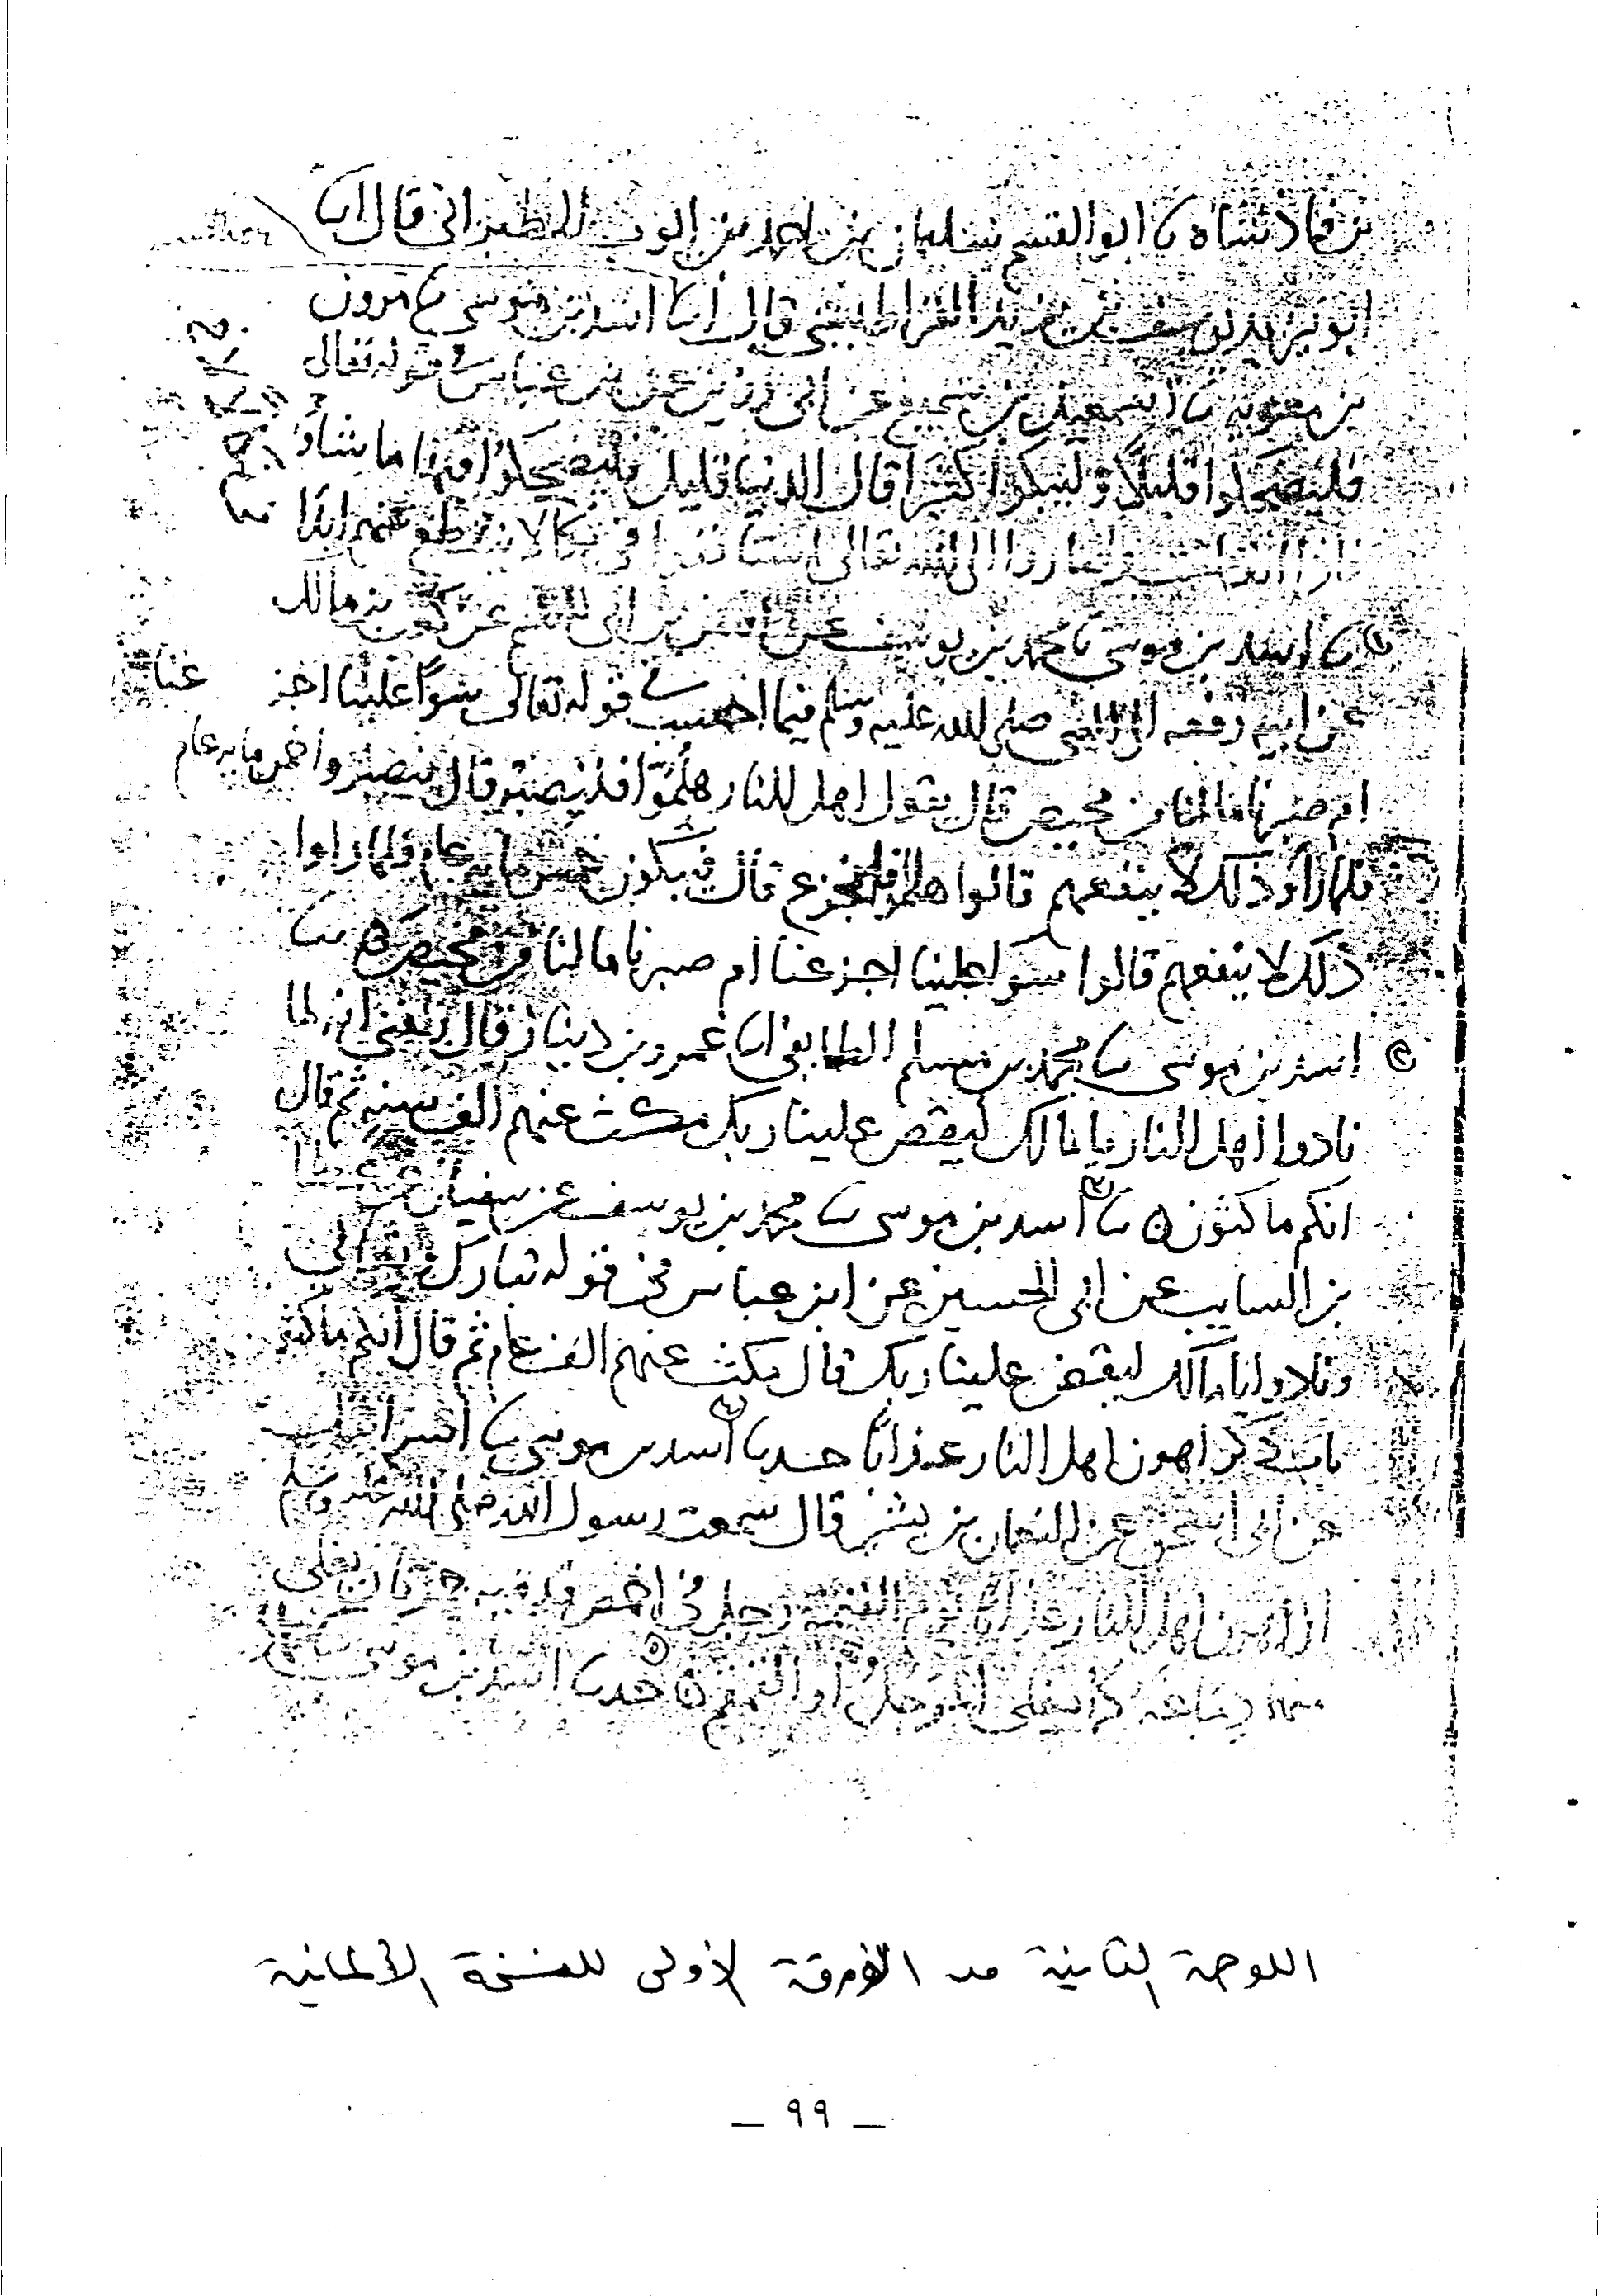 بن فاذشاه نا ابو القسم سليمان بن احمد بن ايوب الطبراني قال انا
ابو يزيد يوسف بن يزيد القراطيسي قال انا اسد بن موسى نا مرون
بن معوية نا اسمعيل بن سميع عن ابي رزين عن بن عباس في قوله تعالى
فليضحكوا قليلا وليبكوا كثيرا قال الدنيا قليل فليضحكوا فيها ما شاوا
صاروا الى الله تعالى استانفوا في بكا لا ينقطع عنهم ابدا
نا اسد بن موسى نا محمد بن يوسف عن بن ابي عن كعب بن مالك
عن ابيه رفعه الى النبي صلى الله عليه وسلم فيما احسب في قوله تعالى سوا علينا اجزعنا
ام صبرنا ما لنا من محيص قال يقول اهل النار هلموا فلنصبر قال فيصبروا خمس مايه عام
فلما راو ذلك لا ينفعهم قالوا هلموا فلنجزع قال فيبكون خمس مايه عام فلما راوا
ذلك لا ينفعهم قالوا سوا علينا اجزعنا ام صبرنا ما لنا من محيص
اسد بن موسى نا محمد بن مسلم الطايفي انا عمرو بن دينار قال بلغني انه لما
نادوا اهل النار يا مالك ليقض علينا ربك مكث عنهم الف سنه ثم قال
انكم ماكثون نا اسد بن موسى نا محمد بن يوسف عن سفيان عن عطا
بن السايب عن ابي الحسين عن ابن عباس في قوله تبارك وتعالى
ونادوا يا مالك ليقض علينا ربك قال مكث عنهم الف عام ثم قال انكم ماكثون
باب ذكر اهون اهل النار عذابا حدثنا اسد بن موسى نا اسرائيل
عن ابي اسحق عن النعمان بن بشير قال سمعت رسول الله صلى الله عليه وسلم
ان اهون اهل النار عذابا يوم القيمه رجل في اخمص قدميه جمرتان يغلى
منهما دماغه كما يغلى المرجل او القمقم حدثنا اسد بن موسى نا
اللوحة الثانية من الورقة الأولى للنسخة الألمانية
_ ٩٩ _